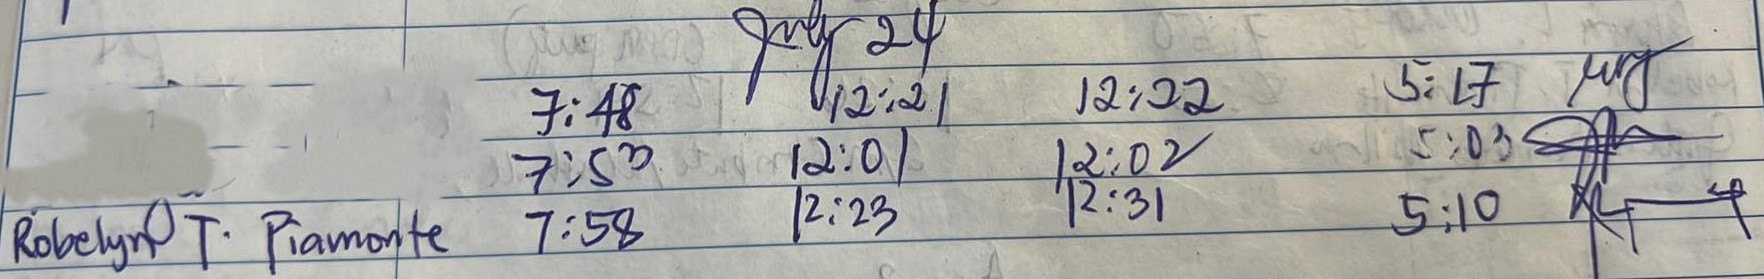 July 24
7:48 12:21 12:22 5:17
7:53 12:01 12:02 5:03
Robelyn T. Piamonte 7:58 12:23 12:31 5:10